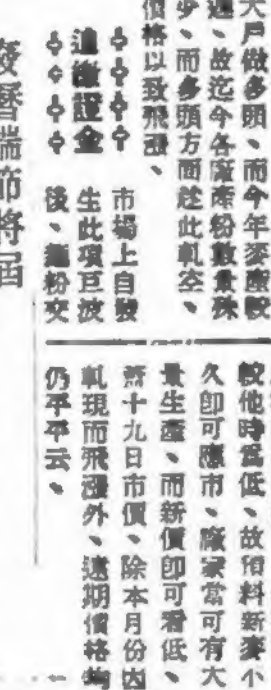 大戶做多頭、而今年麥產較
遲、故迄今各廠產粉數量殊
少、而多頭方面趁此軋空、
價格以致飛漲、
追繳證金
市場上自發
生此項巨波
後、麵粉交
廢曆端節將屆
較他時當低、故預料新麥小
久卽可應市、廠家當可有大
量生產、而新價卽可看低、
十九日市價、除本月份因
軋現而飛漲外、遠期價格
仍平平云、